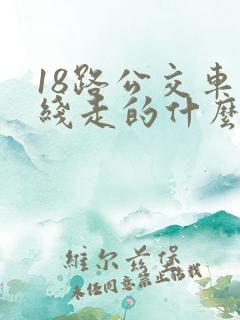 18路公交车
线走的什麽
維尔兹堡
未经同意禁止转载